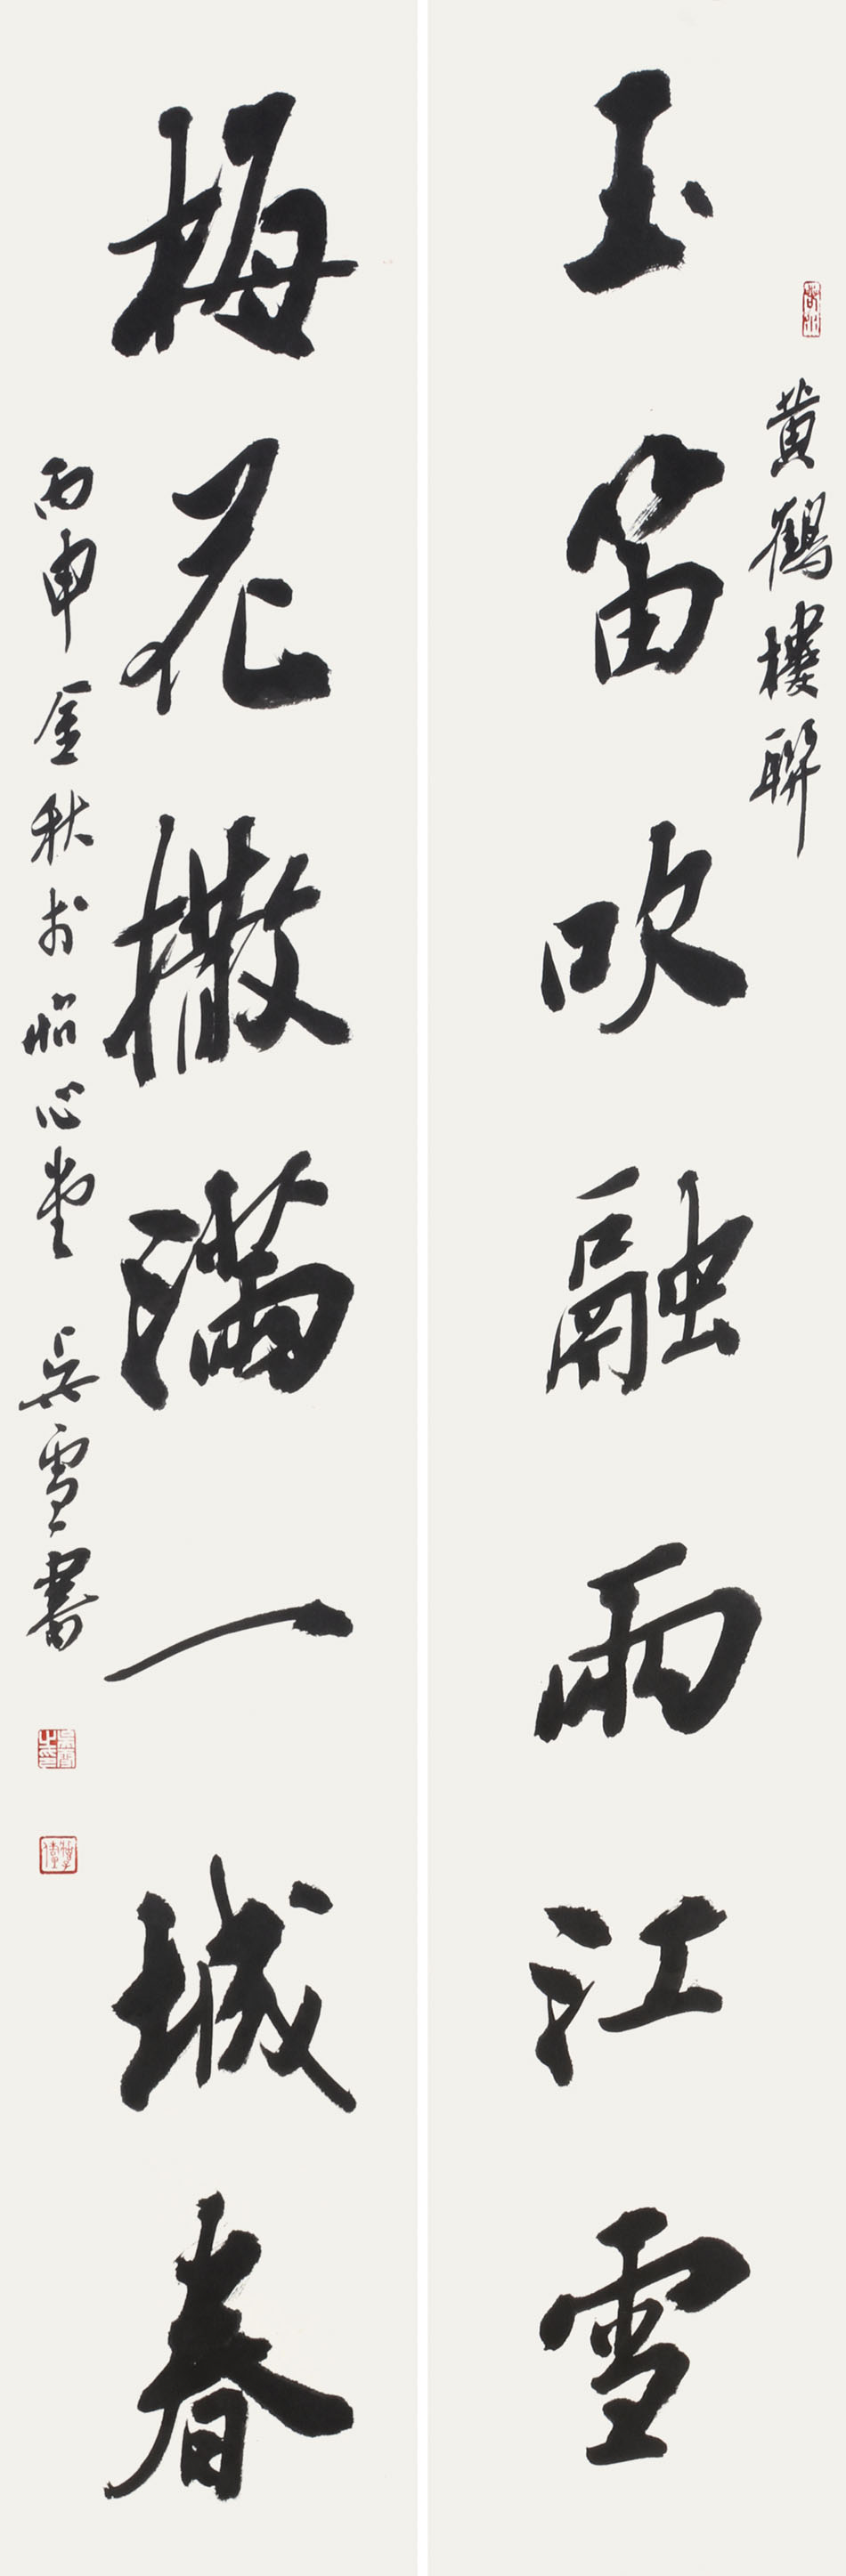 黄鶴樓聯
玉笛吹融兩江雪
梅花撒滿一城春
丙申金秋於昭心堂 吴雪書